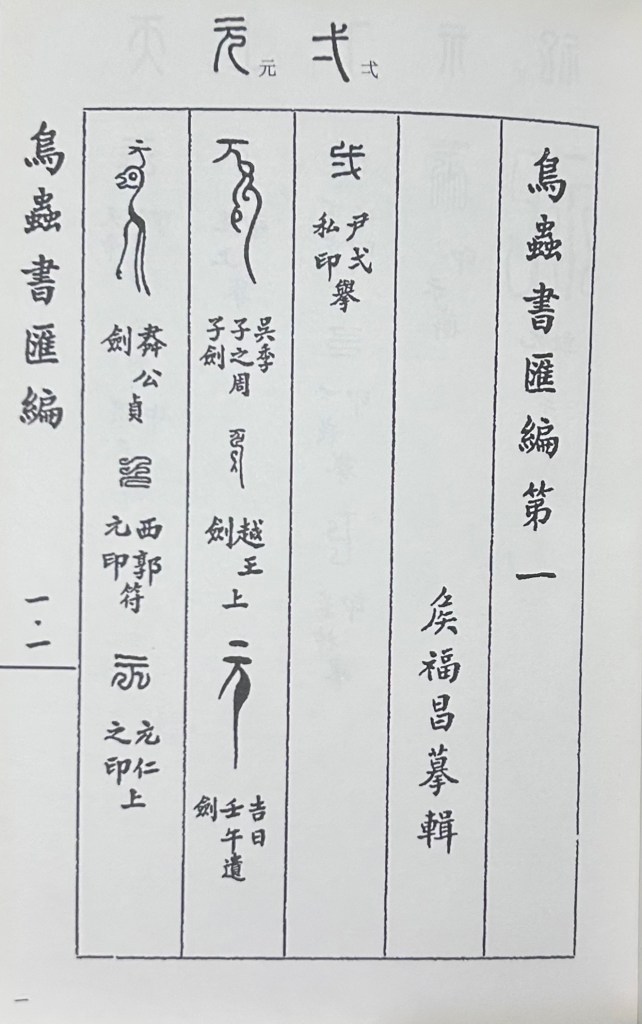 弌
元
鳥蟲書匯編第一
侯福昌摹輯
尹弌舉
私印
吳季
子之周
子劍
越王上
劍
吉日
壬午遺
劍
公貞
劍
西郭符
元印
元仁上
之印
鳥蟲書匯編
一·一
一